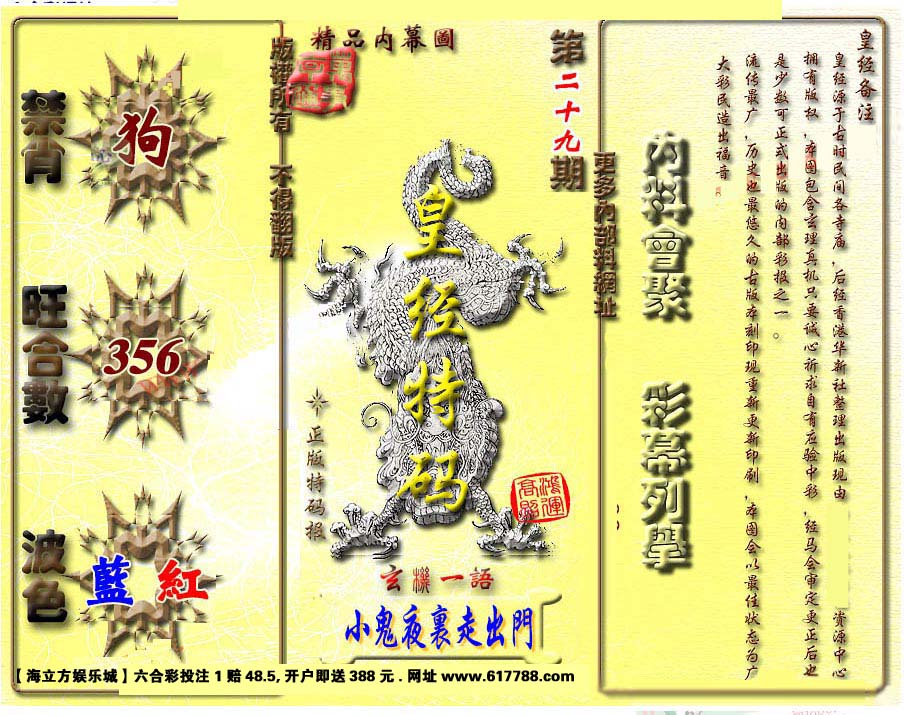 精品内幕圖
版權所有 不得翻版
禁肖
狗
旺合數
356
波色
藍 紅
皇经特码
正版特码报
鴻運高照
玄機一語
小鬼夜裏走出門
第二十九期
更多内部料網址
内料會聚 彩幕列舉
皇经备注
皇经源于古时民间各寺庙,后经香港华新社整理出版现由 资源中心
拥有版权,本图包含玄理真机只要诚心祈求自有应验中彩,经马会审定更正后也
是少数可正式出版的内部彩报之一。
流传最广,历史也最悠久的古版本刻印现重新更新印刷,本图会以最佳状态为广
大彩民造出福音
【海立方娱乐城】六合彩投注 1 赔 48.5, 开户即送 388 元 . 网址 www.617788.com